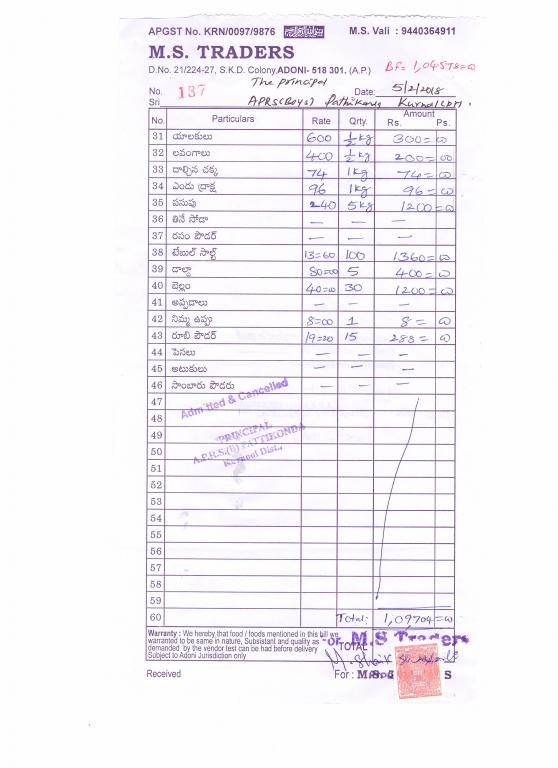 APGST No. KRN/0097/9876 M.S. Vali : 9440364911
M.S. TRADERS
D.No. 21/224-27, S.K.D. Colony, ADONI- 518 301. (A.P.) BF= 1,04578=00
The principal
No. 137 Date: 5/2/2018
Sri APRS(Boys) Pathikonda Kurnool(Dt).
No. Particulars Rate Qrty. Amount
Rs. Ps.
31 యాలకులు 600 ½ kg 300=00
32 లవంగాలు 400 ½ kg 200=00
33 దాల్చిన చక్క 74 1kg 74=00
34 ఎండు ద్రాక్ష 96 1kg 96=00
35 పసుపు 240 5kg 1200=00
36 తినే సోడా — — —
37 రసం పౌడర్ — — —
38 టేబుల్ సాల్ట్ 13=60 100 1360=00
39 దాల్డా 80=00 5 400=00
40 బెల్లం 40=00 30 1200=00
41 అప్పడాలు — — —
42 నిమ్మ ఉప్పు 8=00 1 8=00
43 రూబి పౌడర్ 19=20 15 288=00
44 పెసలు — — —
45 అటుకులు — — —
46 సాంబారు పౌడరు — — —
47
Admitted & Cancelled
48
49
PRINCIPAL
50
A.P.R.S.(B) PATTIKONDA
Kurnool Dist.,
51
52
53
54
55
56
57
58
59
60 Total: 1,09704=00
Warranty : We hereby that food / foods mentioned in this bill we
warranted to be same in nature, Subsistant and quality as
demanded by the vendor test can be had before delivery TOTAL
Subject to Adoni Jurisdiction only
M.S Traders
Received For : M.S.